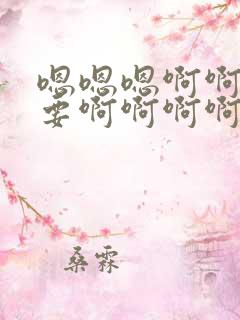 嗯嗯嗯啊啊
要啊啊啊啊
桑霖